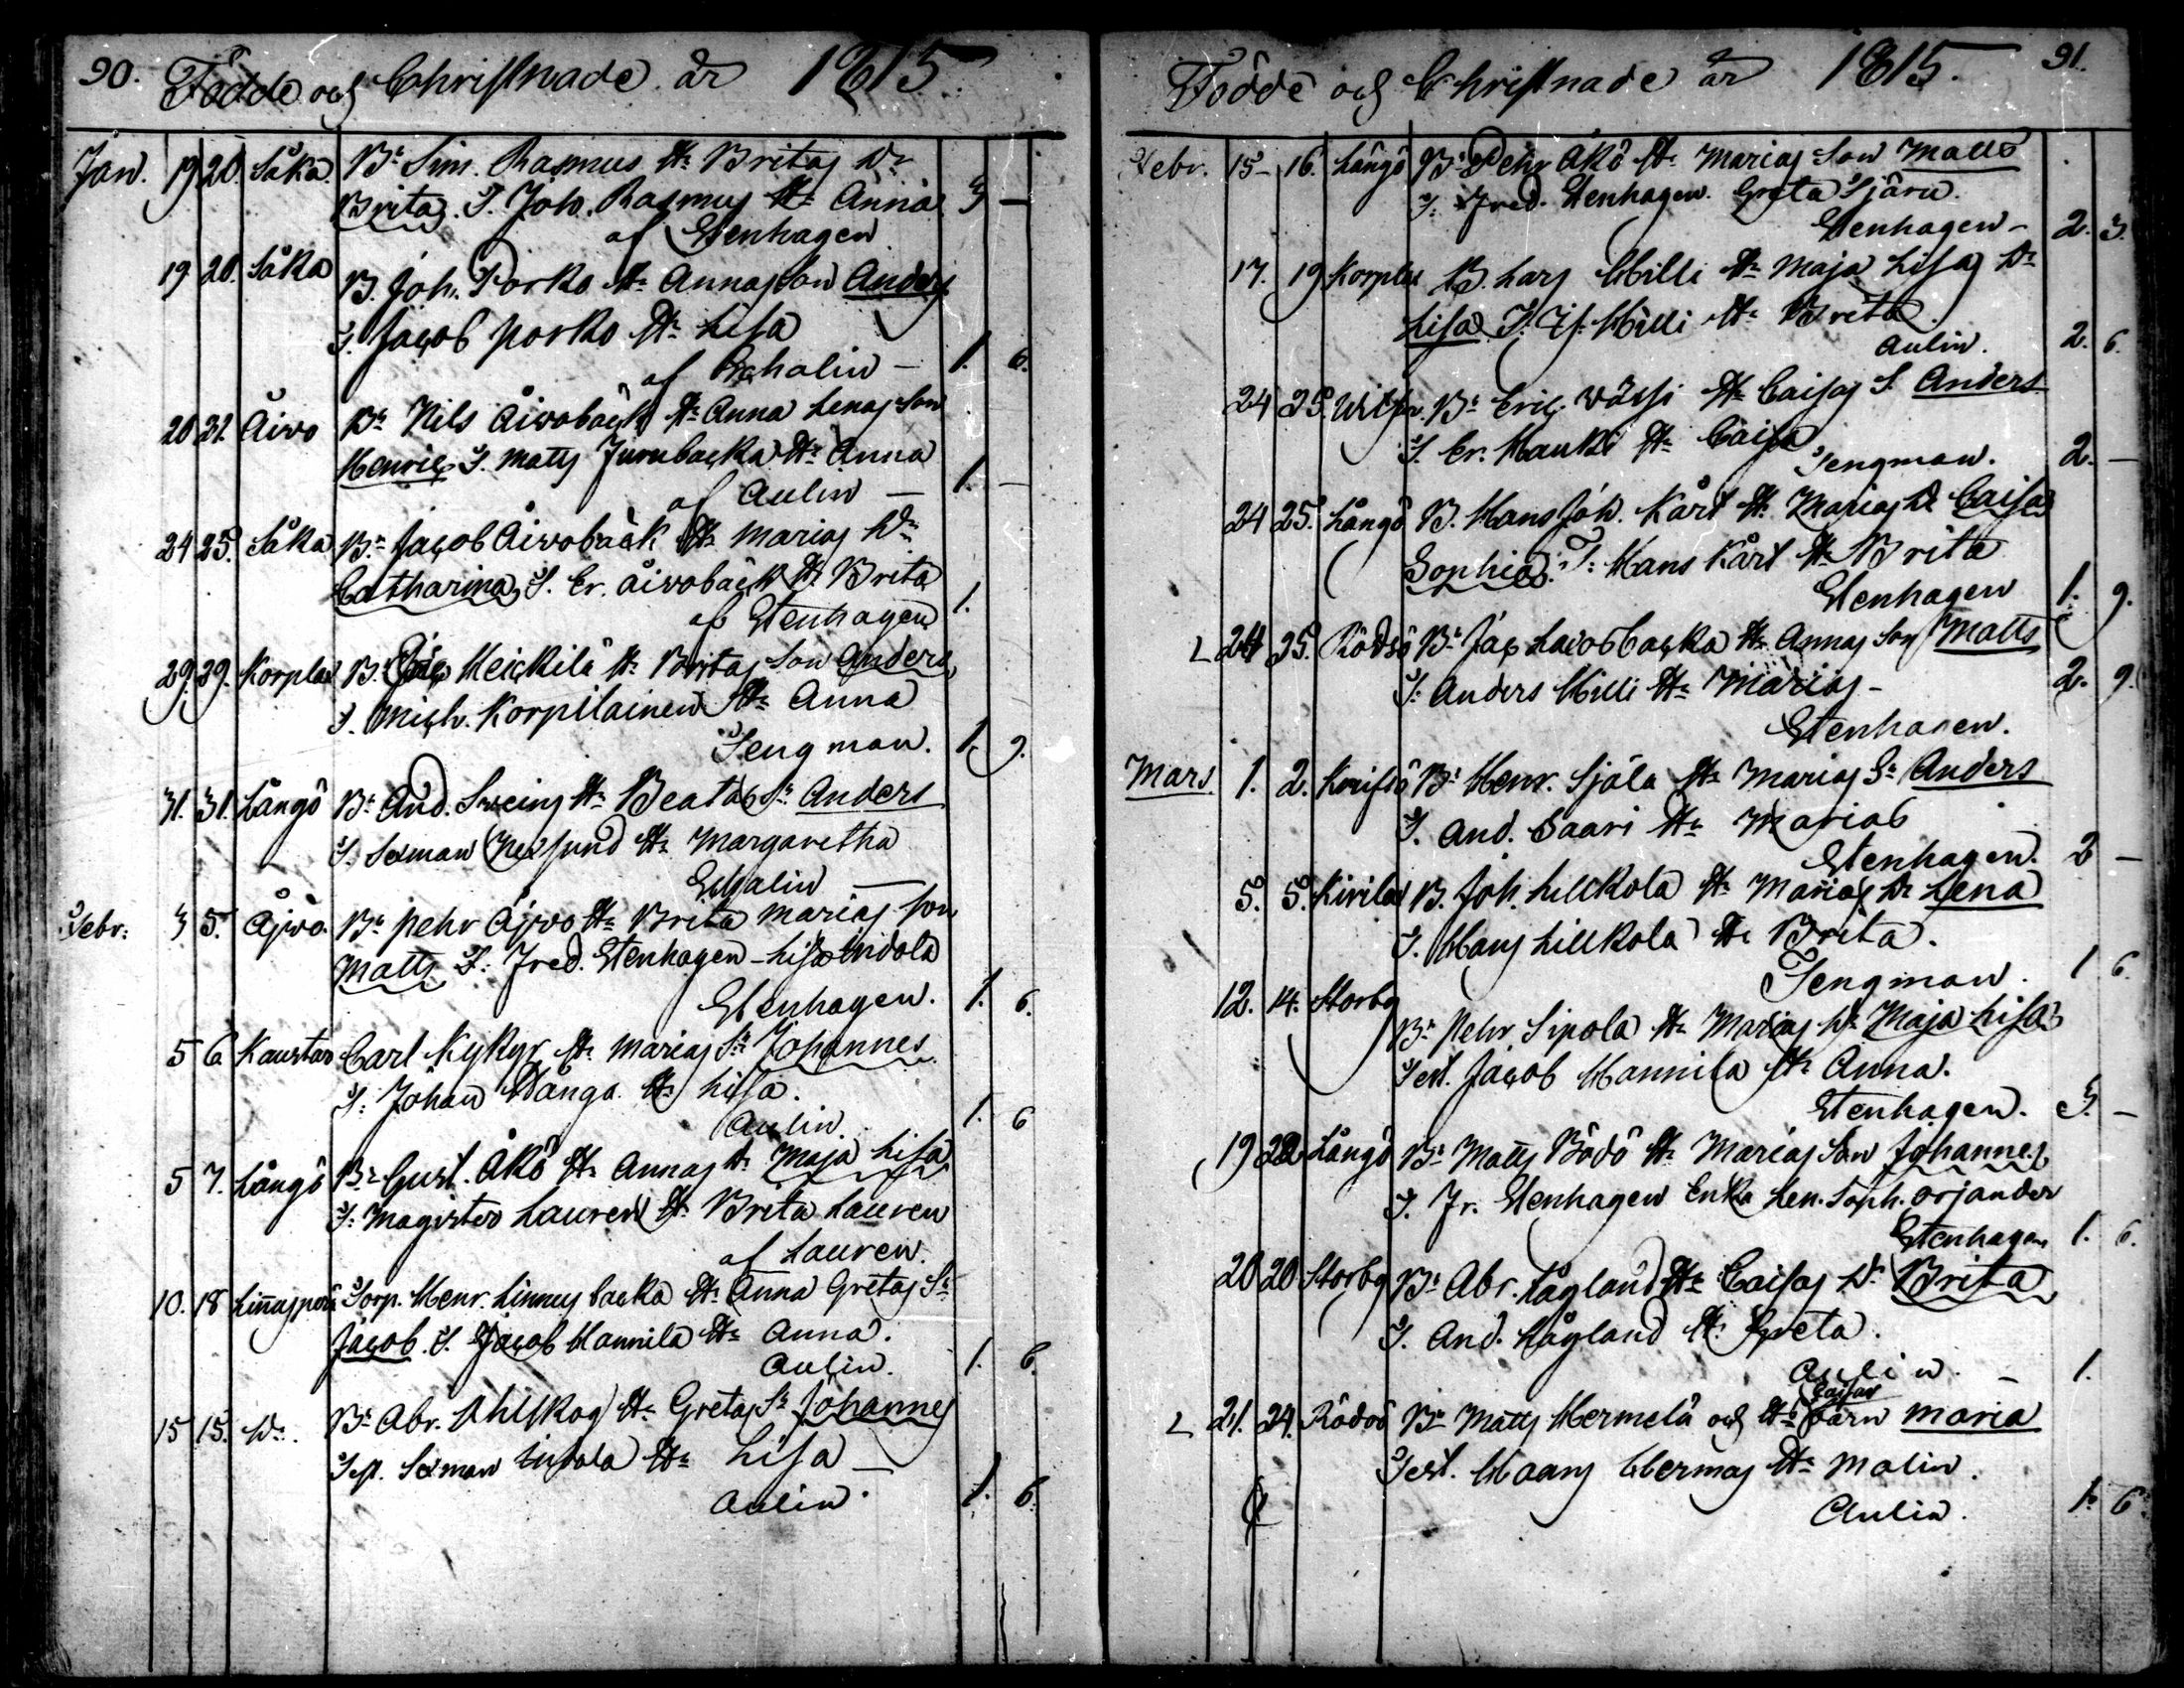 90. Födde och Christnade år 1815.
Jan. 19 20. Såka. Br Sim. Rasmus Hr Britas Dr
Brita. T. Joh. Rasmus Hr Anna 3 —
af Stenhagen
19 20. Såka B. Joh. Porko Hr Annas Son Anders
T. Jacob Porko Hr Lisa
af Echalin — 1. 6.
20 21. Åivo Br Nils Åivobäck Hr Anna Lenas Son
Henric T. Matts Jurnbacka Hr Anna
af Aulin — 1. —
24 25. Såka Br Jacob Åivobäck Hr Marias Dr
Catharina, T. Er. Åivobäck Hr Brita
af Stenhagen 1.
29. 29. Korplax B. Heickilä Hr Britas Son Anders
T. Mich. Korpilainen Hr Anna
Tengman. 1. 9.
31. 31. Långö Br And. Sweins Hr Beatas Sn Anders
T. Sexman Hr Margaretha
Echalin —
Febr: 3 5. Åjvo. Br Pehr Åjvo Hr Brita Marias Son
Matts T: Fred. Stenhagen - Lisa Indola
Stenhagen. 1. 6.
5 6 Kaustar Carl Kykyr Hr Marias Sn Johannes
T: Johan Wånga Hr Lisa.
Aulin. 1. 6
5 7. Långö Br Gust. Åkö Hr Annas Dr Maja Lisa
T: Magister Lauren Hr Brita Lauren
af Lauren.
10. 18 Linnasperä Torp. Henr. Linnusbacka Hr Anna Gretas Sn
Jacob. T. Jacob Hannila Hr Anna.
Aulin. 1. 6.
15 15. Do. Br Abr. Ahlskog Hr Gretas Sn Johannes
Test. Sexman Hr Lisa —
Aulin. 1. 6.
Födde och Christnade år 1815. 91.
Febr. 15 16. Långö Br Pehr Åkö Hr Marias Son Matts
T: Fred. Stenhagen. Greta Sjöru
Stenhagen - 2. 3.
17. 19 Korplax B. Lars Hilli Hr Maja Lisas Dr
Lisa T. Hilli Hr Brita.
Aulin. 2. 6.
24 25. Br Eric Hr Caisas S. Anders
T. Er. Hauki Hr Caisa
Tengman. 2. —
24 25. Långö B. Hans Joh. Kårt Hr Marias Dr Caisa
Sophia. T: Hans Kårt Hr Brita
Stenhagen 1. 9.
24 25. Rödsö Br Jac. Hr Annas Son Matts
T: Anders Hilli Hr Marias - 2. 9.
Stenhagen.
Mars. 1. 2. Br Henr. Sjöla Hr Marias Sn Anders
T. And. Saari Hr Marias
Stenhagen. 2 —
5. 5. Kirilax B. Joh. Lillkola Hr Marias Dr Lena
T. Hans Lillkola Hr Brita.
Tengman. 1 6.
12. 14. Storby
Br Pehr Sipola Hr Marias Dr Maja Lisa
Test. Jacob Hannila Hr Anna.
Stenhagen. 3. —
19 22 Långö Br Matts Bodö Hr Marias Son Johannes
T. Fr. Stenhagen Enka Len. Soph. Orjander
Stenhagen 1. 6.
20 20 Storby Br Abr. Hågland Hr Caisas Dr Brita
T. And. Hågland Hr Greta.
Aulin. — 1.
Caisas
21. 24. Rödsö Br Matts Hermelä och Hr barn Maria
Test. Haans Hermas Hr Malin.
Aulin. 1. 6.